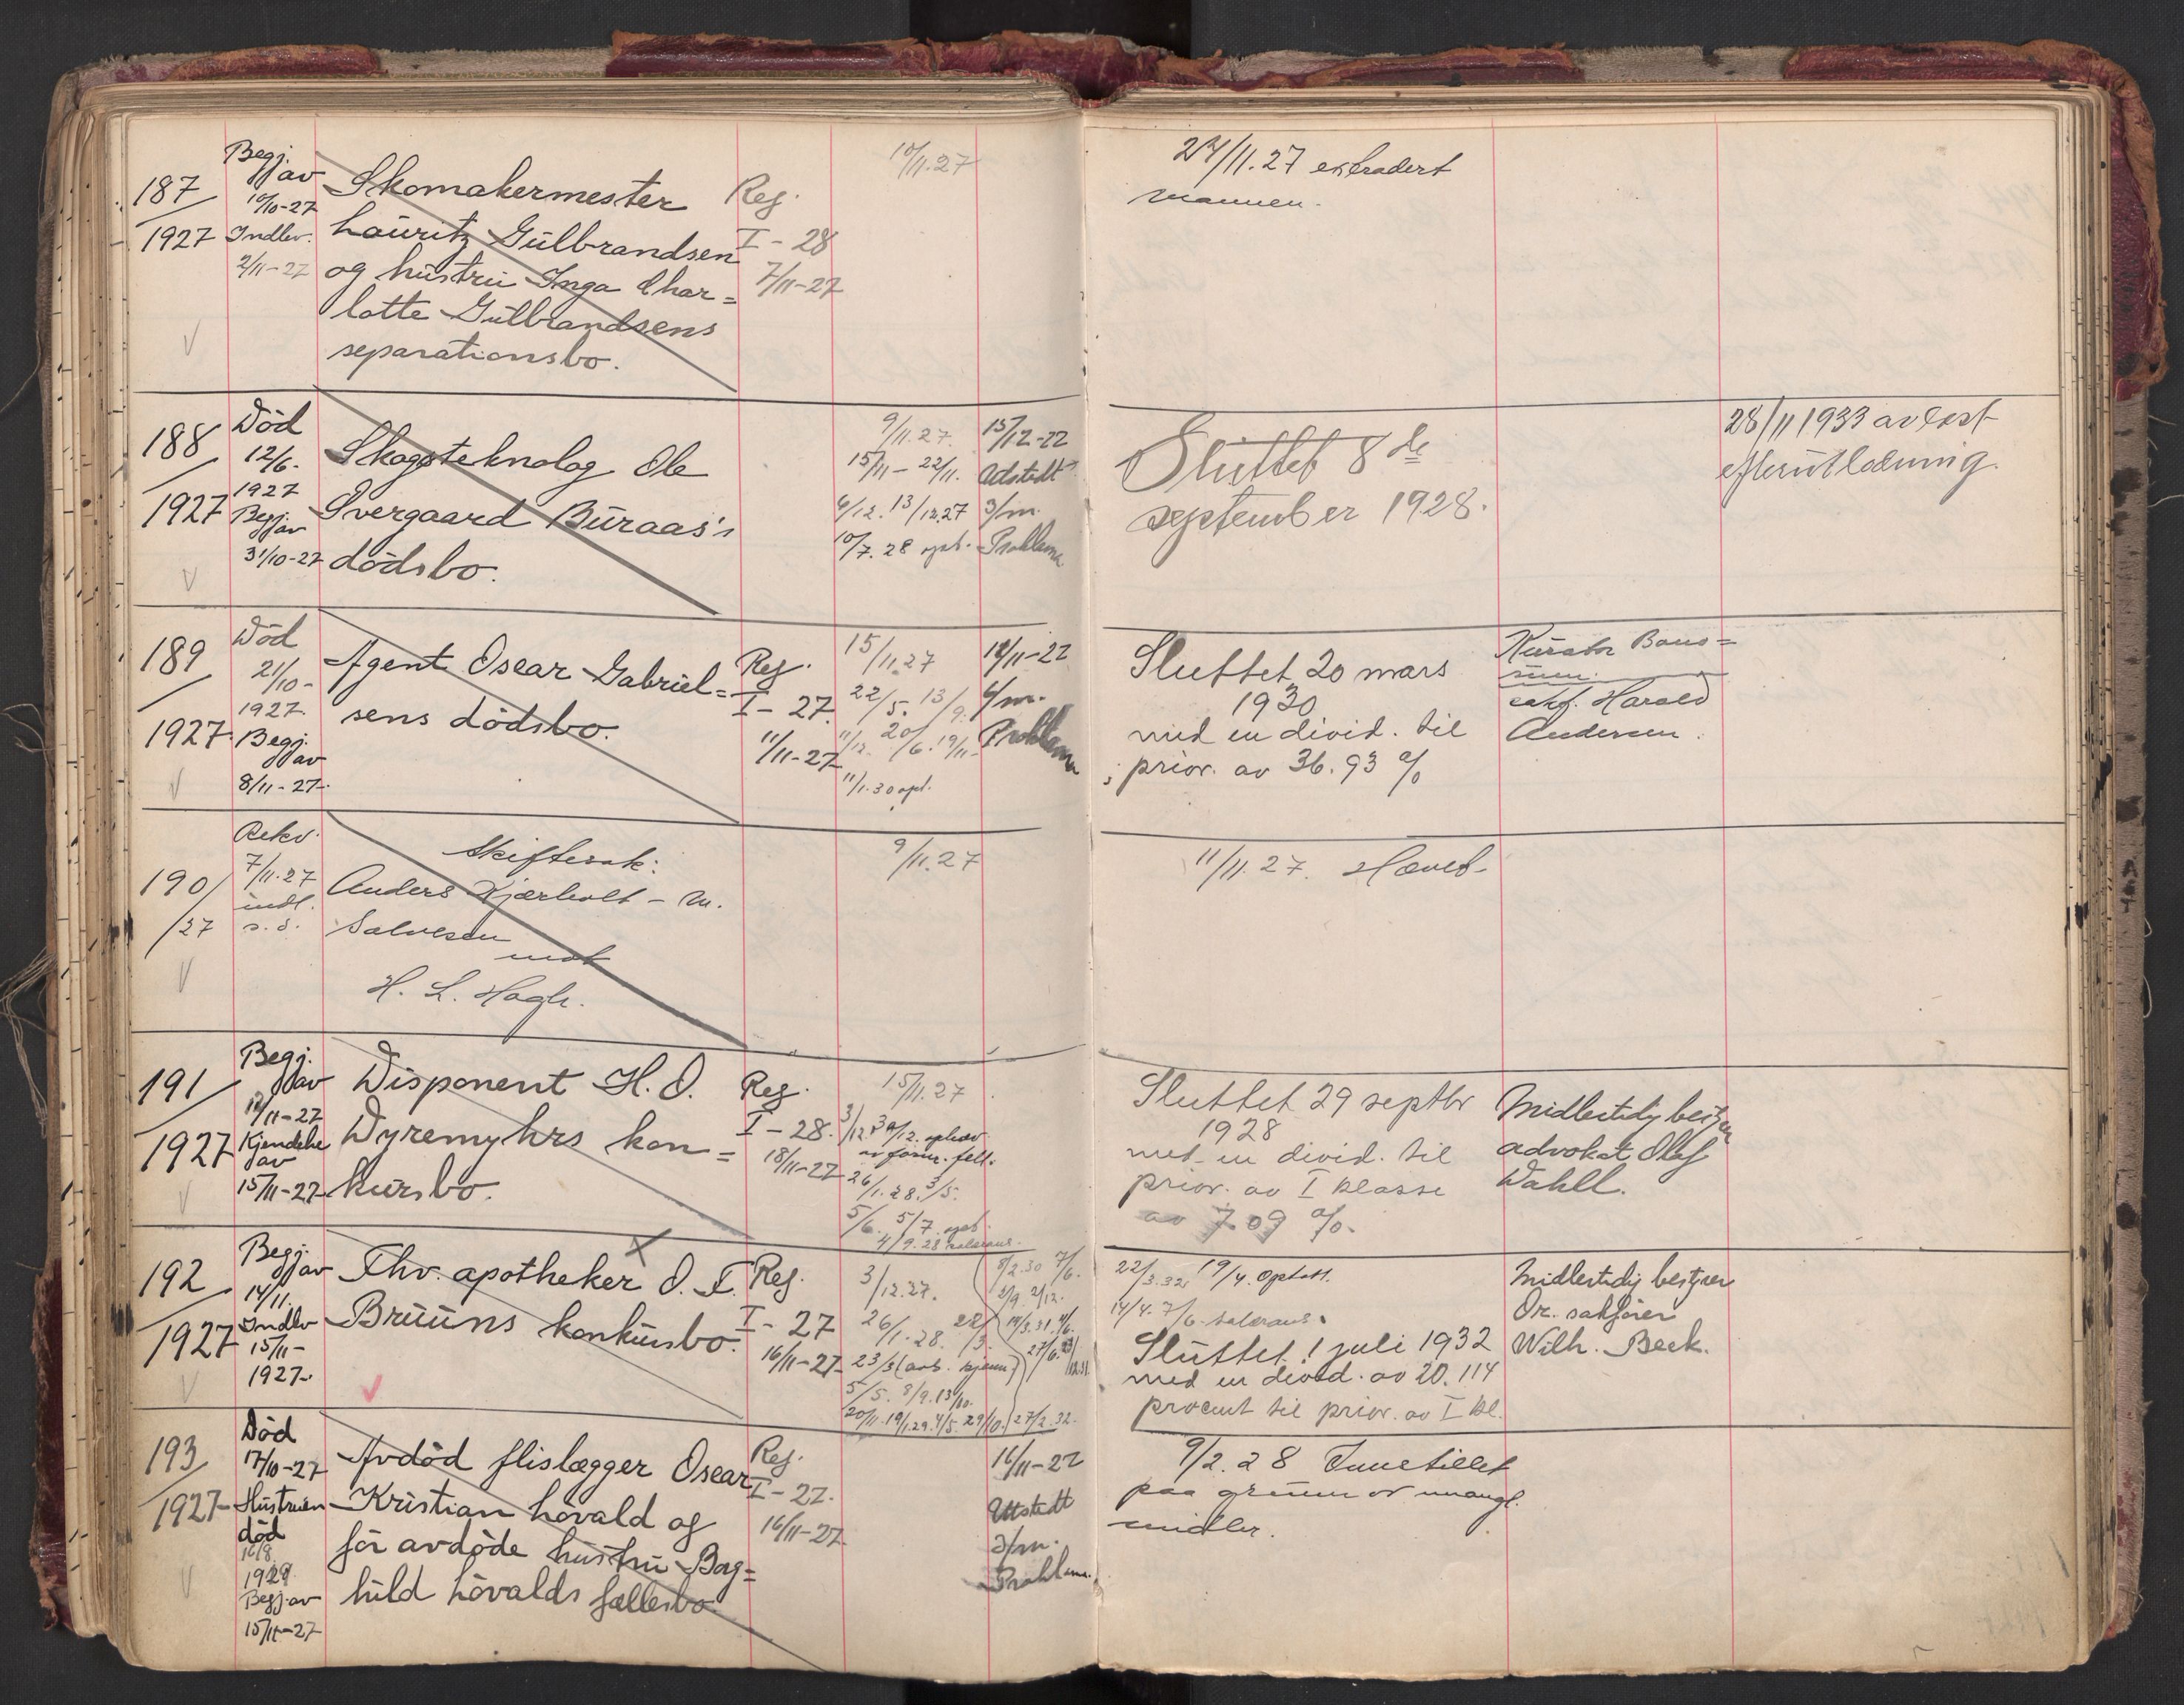 187
1927
Begj.
av
10/10-27
Indlev.
2/11-27
Skomakermester
Lauritz Gulbrandsen
og hustru Inga Char=
lotte Gulbrandsens
separationsbo.
Reg.
I - 28
7/11-27
10/11.27
24/11.27 extradert
mannen.
188
1927
Död
12/6-
1927
Begj.
av
31/10-27
Skogsteknolog Ole
Svergaard Buraas's
dödsbo.
9/11.27.
15/11 - 22/11.
6/12. 13/12.27
10/7.28 opt.
15/12-27
Utstedt
3/m.
Proklama
Sluttet 8de
september 1928.
28/11 1933 avløst
efterutlodning.
189
1927
Död
21/10-
1927.
Begj.
av
8/11-27.
Agent Oscar Gabriel=
sens dödsbo.
Reg.
I - 27.
11/11-27
15/11.27
22/5. 13/9.
11/12. 20/6. 19/11-
11/1.30 opt.
18/11-27
6/m.
Proklama
Sluttet 20 mars
1930
med en divid. til
prior. av 36.93 %
Kurator Bous=
sakf. Harald
Andersen.
190/
/27
Rekv.
7/11.27
indl.
s. d.
Skiftesak:
Anders Kjærholt - m.
Salvesen
mot
H. L. Hagh.
9/11.27
11/11.27. Hævet.
191
1927
Begj.
av
12/11-27
Kjendelse
av
15/11-27
Disponent H. O.
Dyremyhrs kon=
kursbo.
Reg.
I - 28.
18/11-27
15/11.27
3/12. 30/12. ophav
av form. fell.
26/1.28. 3/5.
5/6. 5/7. opt.
4/9.28
Sluttet 29 septbr
1928
med en divid. til
prior. av I klasse
av 7.09 %.
Midlertidig bestyrer
advokat Olaf
Dahll.
192
1927
Begj.
av
14/11.
Indlev
15/11-
1927.
Fhv. apotheker O. F.
Bruuns konkursbo.
Reg.
I - 27
16/11-27
3/12.27.
26/1.28. 22/3.
23/3 (avb. kjenn)
5/5. 8/9. 13/10.
20/11. 19/1.29. 4/5. 29/10. 27/2.32.
8/2.30 7/6.
2/9. 2/12.
22/3.32 19/4. Optatt.
14/4. 7/6.
Sluttet 1 juli 1932
med en divid. av 20.114
procent til prior. av I kl.
Midlertidig bestyrer
Or. sakfører
Wilh. Beck.
193
1927
Död
17/10-27
Hustruen
död
16/8
1929
Begj. av
15/11-27
Avdöd flislægger Oscar
Kristian Lövald og
för avdöde hustru Borg=
hild Lövalds fællesbo.
Reg.
I - 27.
16/11-27
16/11-27
Utstedt
3/m.
Proklama.
9/2.28 Innstillet
paa grunn av mangl.
midler.